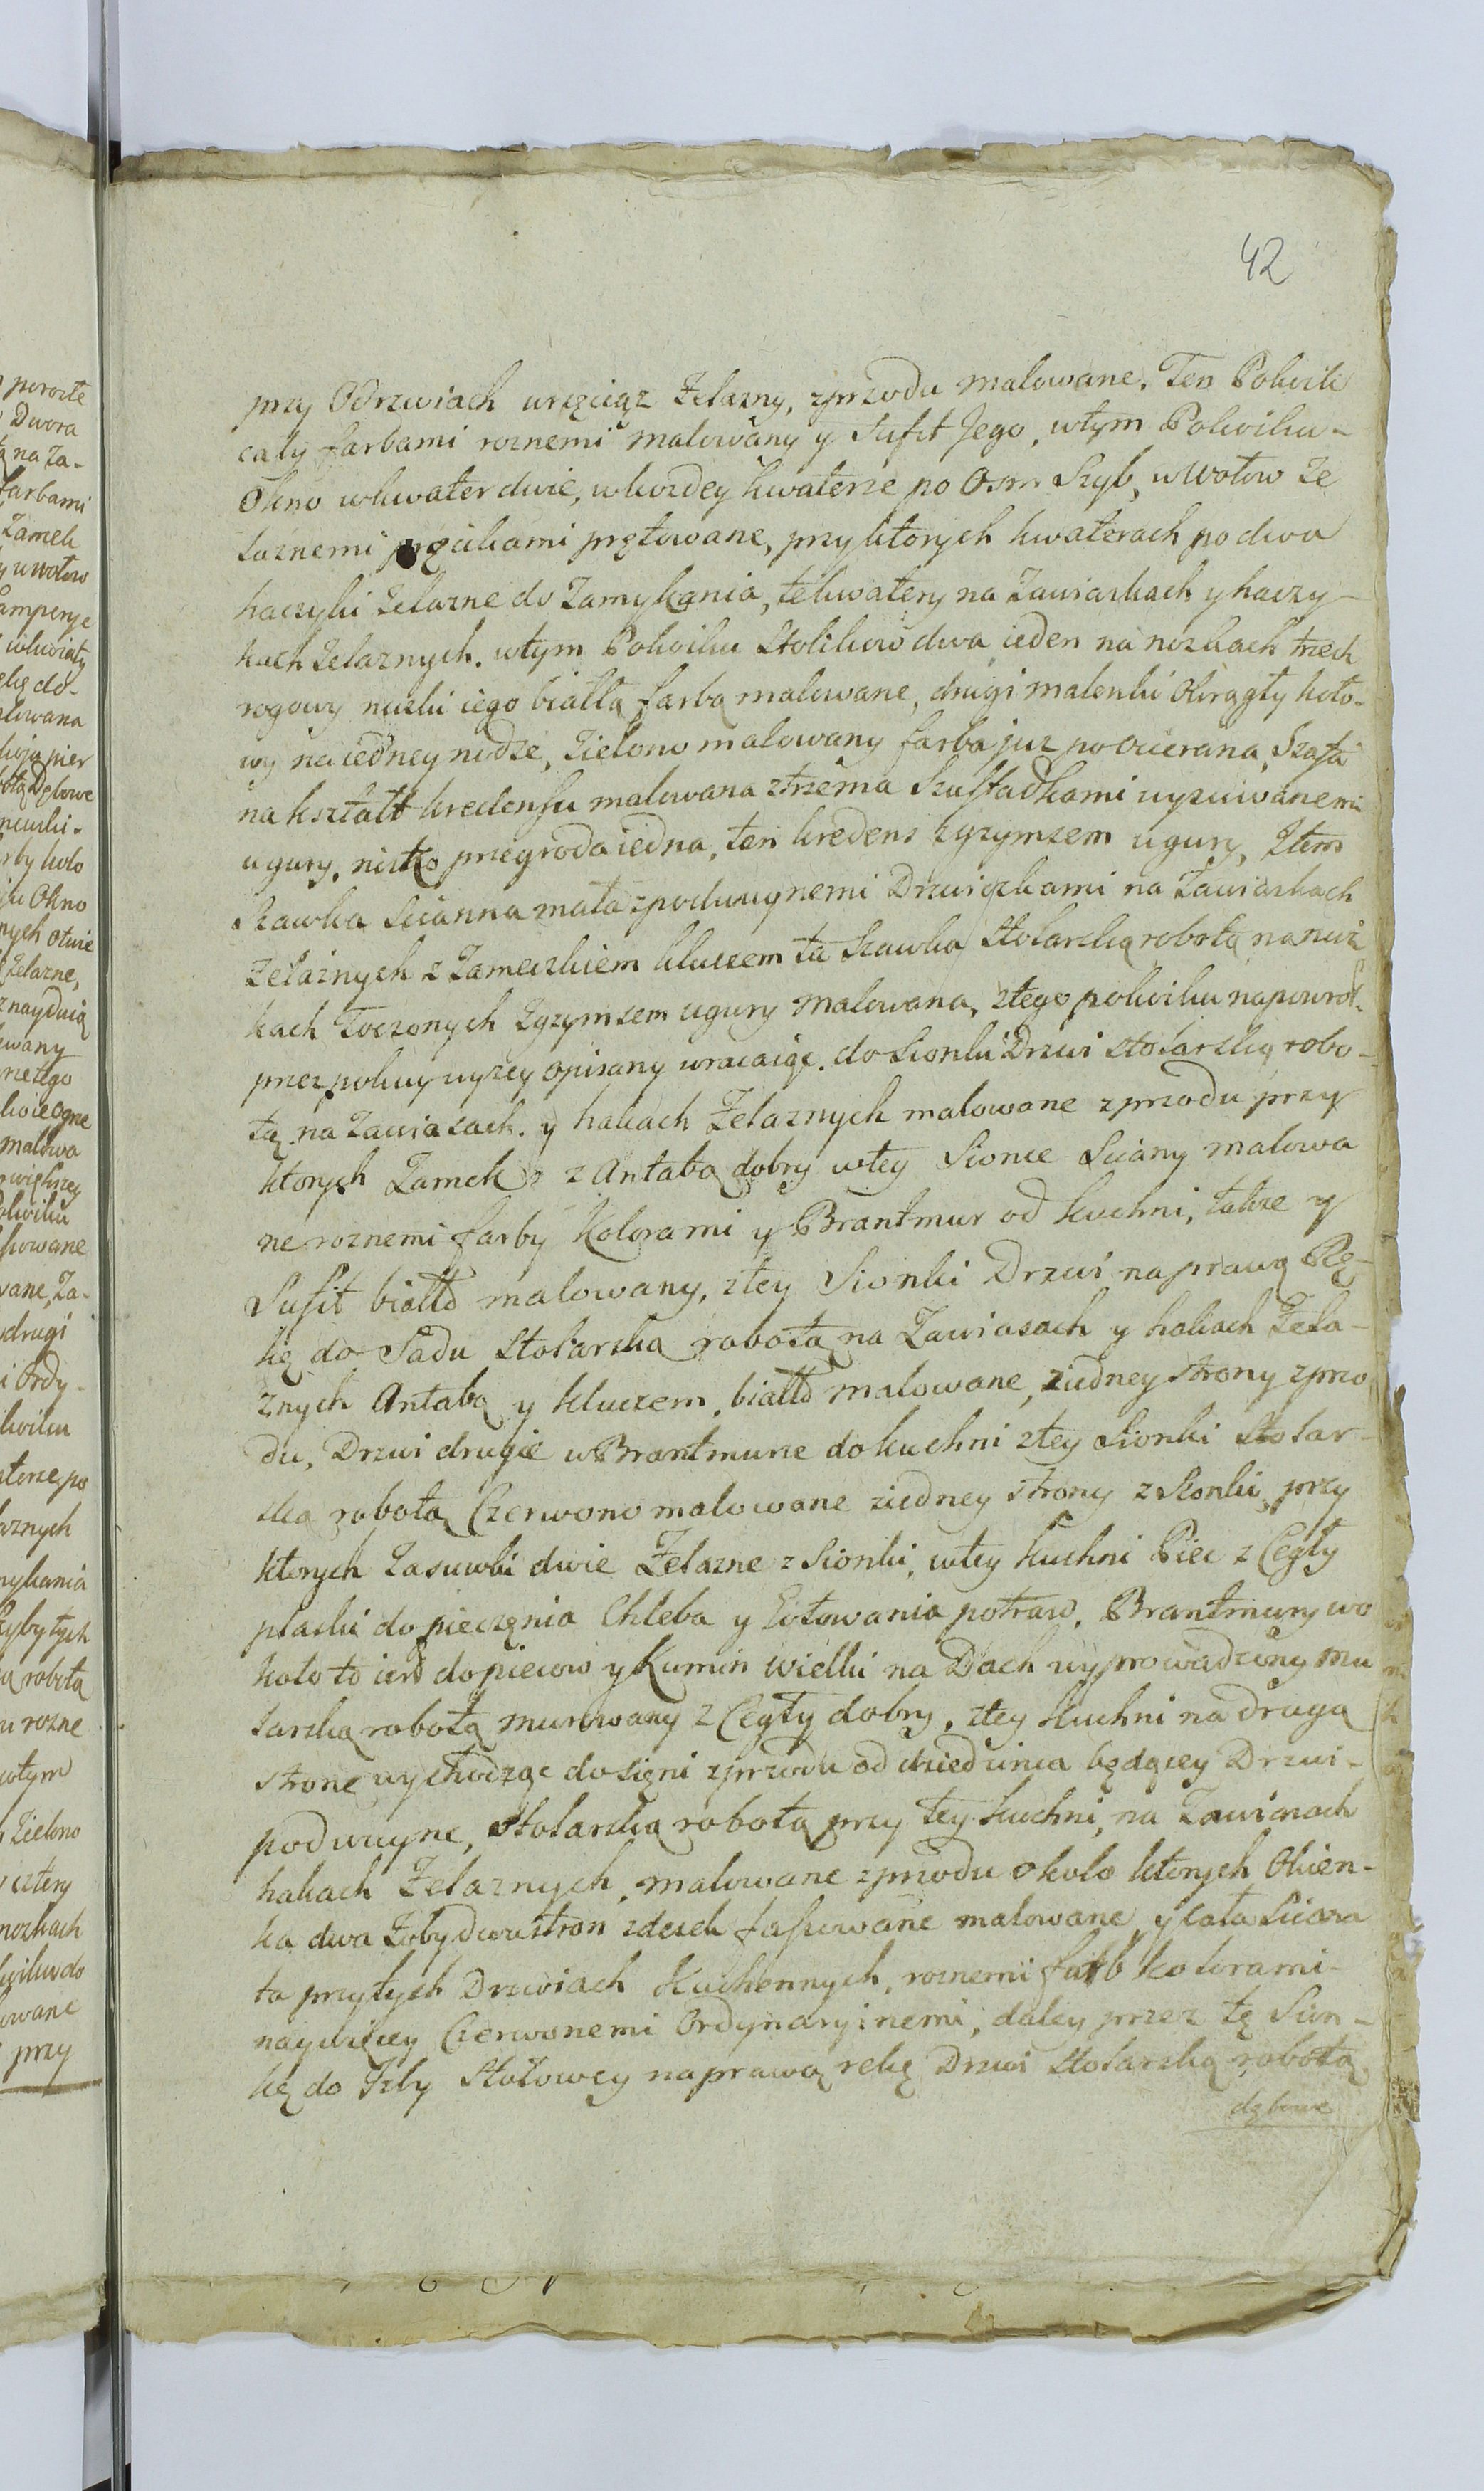 42
przy Odrzwiach wrzeciąz Żelazny, zprzodu malowane. Ten Pokoik
cały farbami roznemi malowany y Sufit Jego, wtym Pokoiku-
Okno wkwater dwie, wkozdey kwaterze po Osm Szyb, wWołow Że
laznemi pręcikami prętowane, przyktorych kwaterach po dwa
haczyki Żelazne do Zamykania, tekwatery na Zawiaskach y haczy-
kach Żelaznych. wtym Pokoiku Stolikow dwa, ieden na nozkach trzech
rogowy nuzki iego białlą farbą malowane, drugi malenki Okrągły koło-
wy na iedney nodze, Zielono malowany farba juz poocierana, Szafa
na kształt kredensu malowana ztrzema Szufladkami wysuwanemi
ugury, nisko przegroda iedna, ten kredens zgzymsem ugury, Item
Szawka Scianna mała zpodwuynemi Drzwiczkami na Zawiaskach
Żelaznych z Zameczkiem kluczem ta Szawka Stolarską robotą nanuz
kach Toczonych Zgzymsem ugury malowana, ztego pokoiku napowrot-
przez pokuy wyzey opisany wracaiąc. do Sionki Drzwi stolarską robo-
tą na Zawiasach. y hakach Żelaznych malowane zprzodu przy
ktorych Zamek z Antabą dobry wtey Sionce Sciany malowa
ne roznemi farby Kolorami y Brantmur od kuchni, takze y
Sufit biallo malowany, ztey Sionki Drzwi naprawą Rę-
kę do Sadu Stolarska robotą na Zawiasach y hakach Żela-
znych Antabą y kluczem, biallo malowane, ziedney strony zprzo
du, Drzwi drugie wBrantmurze dokuchni ztey Sionki Stolar-
ska robotą Czerwono malowane ziedney strony z Sionki, przy
ktorych Zasuwki dwie Żelazne z Sionki, wtey kuchni Piec z Cegły
płaski do pieczęnia Chleba y Gotowania potraw, Brantmury wo
koło to iest dopiecow y Kumin wielki na Dach wyprowadzony mu
larską robotą murowany z Cegły dobry, ztey kuchni na drugą
strone wychodząc dosięni zprzodu od dziedzinca będącey Drzwi-
podwuyne, Stolarską robotą przy tey kuchni, na Zawiasach
hakach Żelaznych, malowane zprzodu okolo ktorych Okien-
ka dwa Zobydwustron zdesek fasowane malowane, y cała Sciana
ta przytych Drzwiach kuchennych, roznemi farb kolorami-
naywięcey Czerwonemi Ordynaryinemi, daley przez tę Sion-
kę do Izby Stołowey naprawą rekę Drzwi Stolarską robotą
dębowe